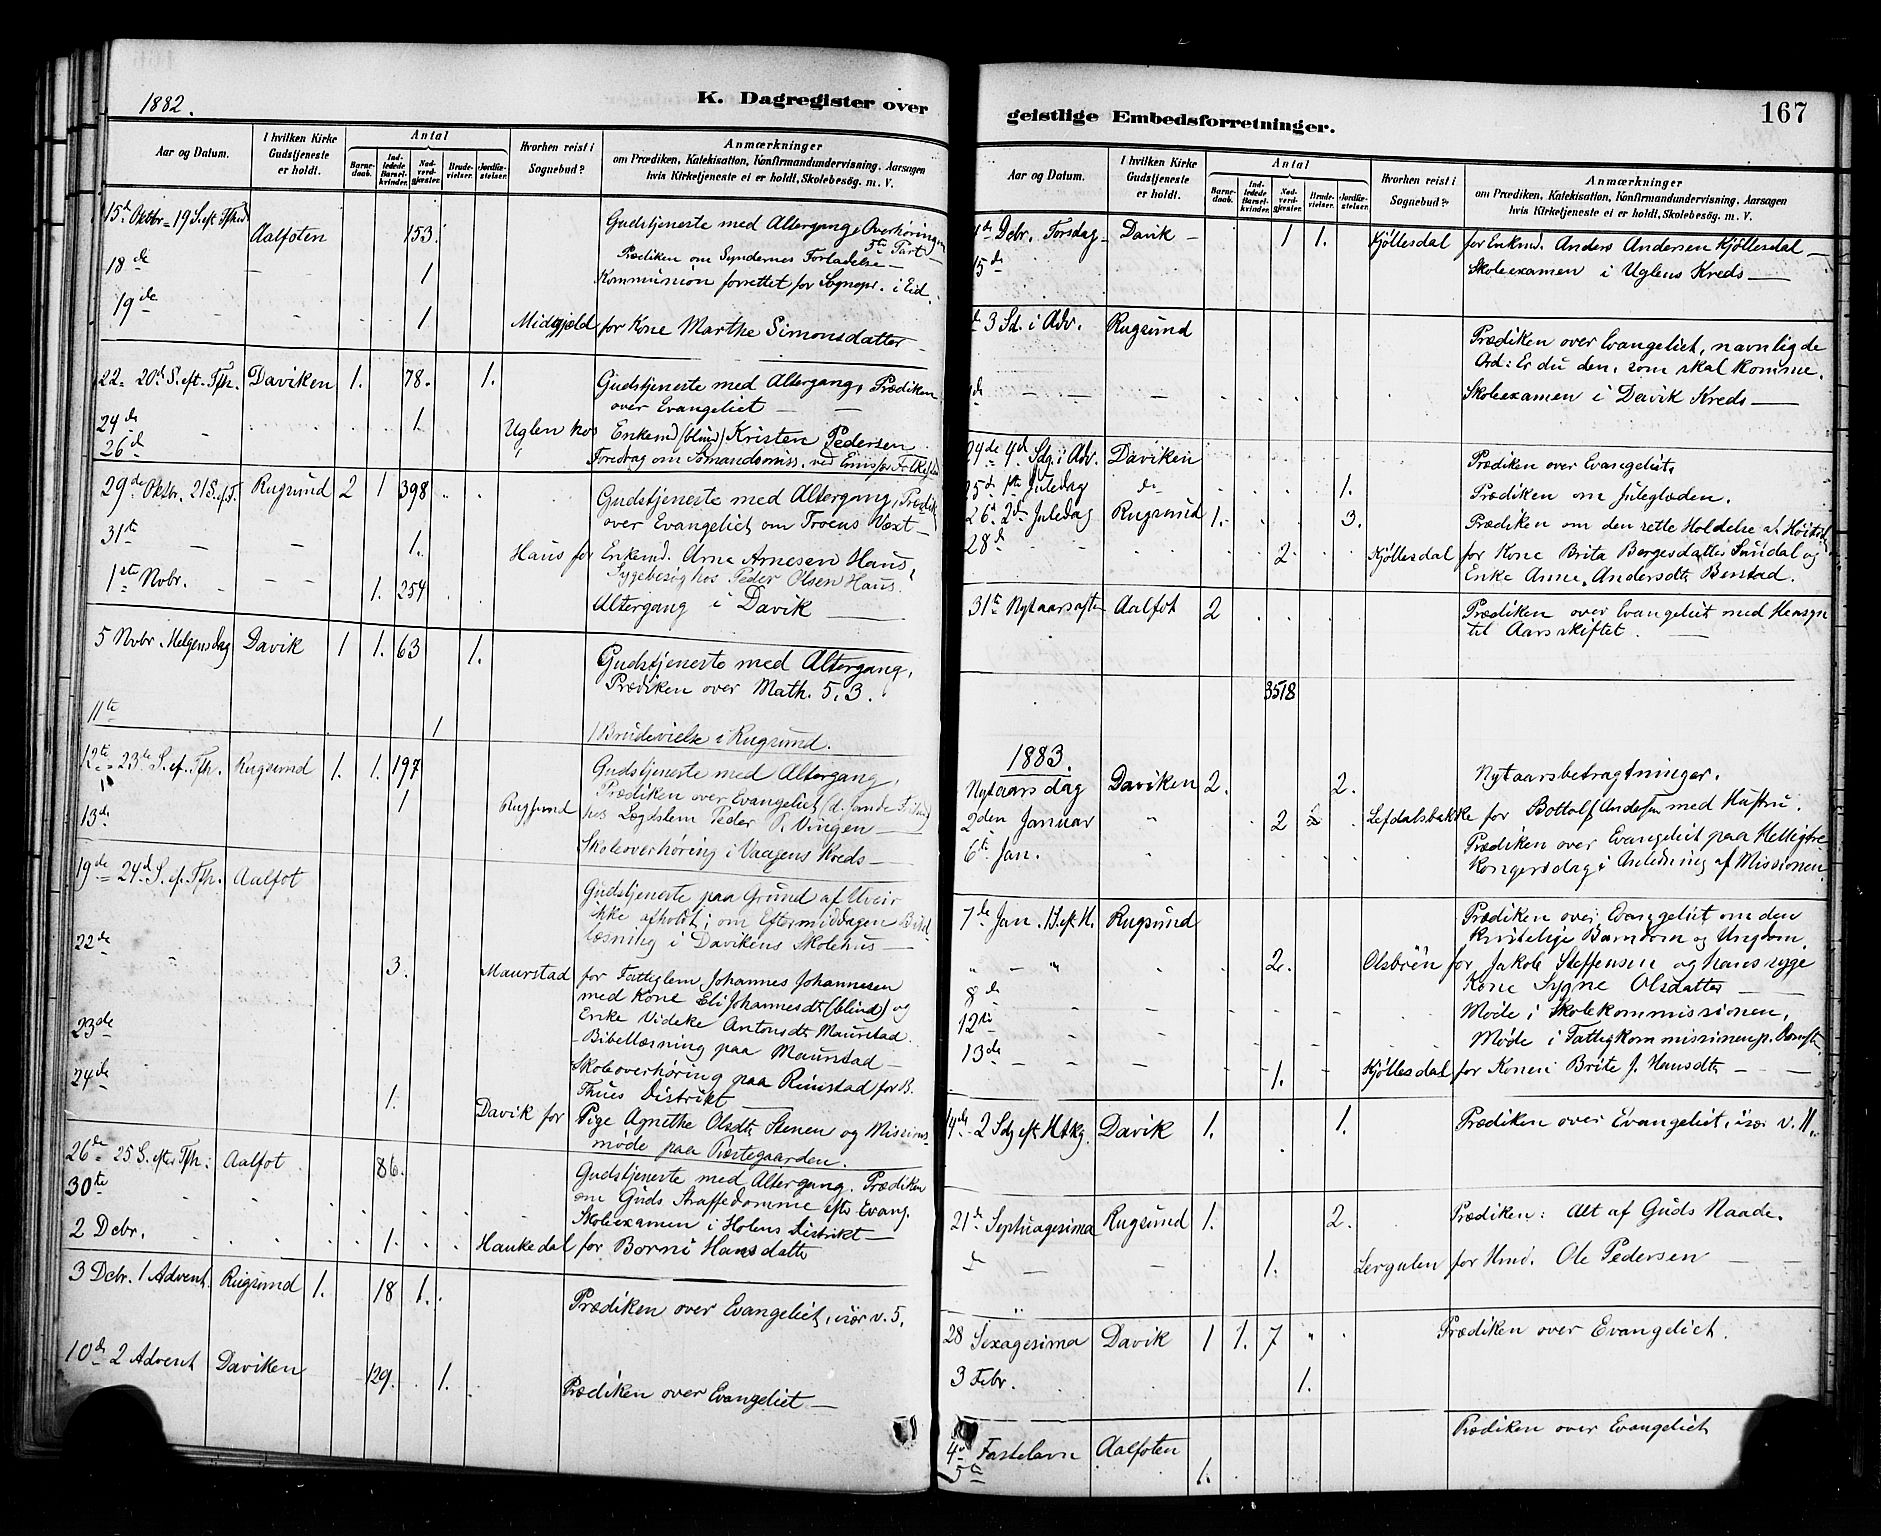 1882.
K. Dagregister over
Aar og Datum.
I hvilken Kirke Gudstjeneste er holdt.
Antal
Barnedaab.
Indledede Barselkvinder.
Nadverdgjæster.
Brudevielser.
Jordfæstelser.
Hvorhen reist i Sognebud?
Anmærkninger
om Prædiken, Katekisation, Konfirmandundervisning. Aarsagen
hvis Kirketjeneste ei er holdt, Skolebesøg. m. V.
15de Oktbr. 19 S. eft. Aalfoten 153. Gudstjeneste med Altergang, Overhøring
Prædiken om Syndernes Forladelse —
18de — 1 Kommunion forrettet for Sognepr. i Eid.
19de 1 Midgjæld for Kone Marthe Simonsdatter
22. 20de S. eft. Tfh. Daviken 1. 78. 1. Gudstjeneste med Altergang, Prædiken
over Evangeliet —
24de 1. Uglen hos Enkemd (blind) Kristen Pedersen
26de Foredrag om Sømandsmiss. ved
29de Oktbr. 21 S. e. T. Rugsund 2 1 398 Gudstjeneste med Altergang, Prædik.
over Evangeliet om Troens Væxt —
31te 1. Haus for Enkemd. Arne Arnesen Haus,
Sygebesøg hos Peder Olsen Haus.
1ste Novbr. 1. 254 Altergang i Davik
5 Novbr. Helgensdag Davik 1 1. 63 1. Gudstjeneste med Altergang,
Prædiken over Math. 5,3.
11te 1 1 Brudevielse i Rugsund.
12te 23de S. ef. Tfh. Rugsund 1. 1. 197 Gudstjeneste med Altergang,
Prædiken over Evangeliet
13de 1 Rugsund hos Lægdslem Peder P. Vingen —
Skoleoverhøring i Vaagens Kreds —
19de 24de S. ef. Tfh. Aalfot Gudstjeneste paa Grund af Uveir
ikke afholdt; om Eftermiddagen Bibel-
læsning i Davikens Skolehus —
22de 3. Maurstad for Fattiglem Johannes Johannesen
med Kone Eli Johannesdt. (blind) og
Enke Videke Antonsdt. Maurstad.
23de — Bibellæsning paa Maurstad —
24de Skoleoverhøring paa Rimstad for B.
Thues Distrikt —
1. Davik for Pige Agnethe Olsdt. Stenen og Missions-
møde paa Præstegaarden.
26de 25 S. efter Tfh. Aalfot 86. Gudstjeneste med Altergang. Prædiken
om Guds Straffedomme efter Evang.
30te Skoleexamen i Holens Distrikt —
2 Decbr. 1. Haukedal for Børni Hansdatter
3 Decbr. 1 Advent. Rugsund 1. 18 1. Prædiken over Evangeliet, især v. 5.
10de 2 Advent Daviken 129. 1. Prædiken over Evangeliet —
geistlige Embedsforretninger.
167
Aar og Datum.
I hvilken Kirke Gudstjeneste er holdt.
Antal
Barnedaab.
Indledede Barselkvinder.
Nadverdgjæster.
Brudevielser.
Jordfæstelser.
Hvorhen reist i Sognebud?
Anmærkninger
om Prædiken, Katekisation, Konfirmandundervisning, Aarsagen
hvis Kirketjeneste ei er holdt, Skolebesøg. m. V.
Dcbr. Torsdag Davik — 1 1. Kjøllesdal for Enkmd. Anders Andersen Kjøllesdal —
15de Skoleexamen i Uglens Kreds —
3 Sd. i Adv. Rugsund Prædiken over Evangeliet, navnlig de
Ord: Er du den, som skal komme.
Skoleexamen i Davik Kreds —
24de 4de Sdg. i Adv. Daviken Prædiken over Evangeliet.
25de 1ste Juledag do 1. Prædiken om Juleglæden.
26de 2den Juledag Rugsund 1. 3. Prædiken om den rette Holdelse af
28de 2. Kjøllesdal for Kone Brita Børgesdatter Sundal og
Enke Anne Andersdt. Benstad.
31te Nytaarsaften Aalfot 2 Prædiken over Evangeliet med Hensyn
til Aarsskiftet. —
3518
1883.
Nytaarsdag Daviken 2. 2. Nytaarsbetragtninger.
2den Januar 2 Lefdalsbakke for Bottolf Andersen med Hustru.
6te Jan. Prædiken over Evangeliet paa Helligtre
Kongersdag i Anledning af Missionen.
7de Jan. 1 S. eft. H. Rugsund Prædiken over Evangeliet om den
kristelige Barndom og Ungdom.
" — " 2. Olsbrøen for Jakob Steffensen og Hans syge
Kone Sygne Olsdatter —
8de Møde i Skolekommissionen.
12te Møde i Fattigkommissionen
13de 1. Kjøllesdal for Konen Brite J. Hansdt. —
14de 2 Sdg eft. Htkg. Davik 1. 1. Prædiken over Evangeliet, især v. 11.
21de Septuagesima Rugsund 1. 2. Prædiken: Alt af Guds Naade.
1. Lergulen for Umd. Ole Pedersen —
28 Sexagesima Davik 1 1. 7 " Prædiken over Evangeliet.
3 Febr. 1.
4de Fastelavn Aalfoten Prædiken over Evangeliet
5te 1.